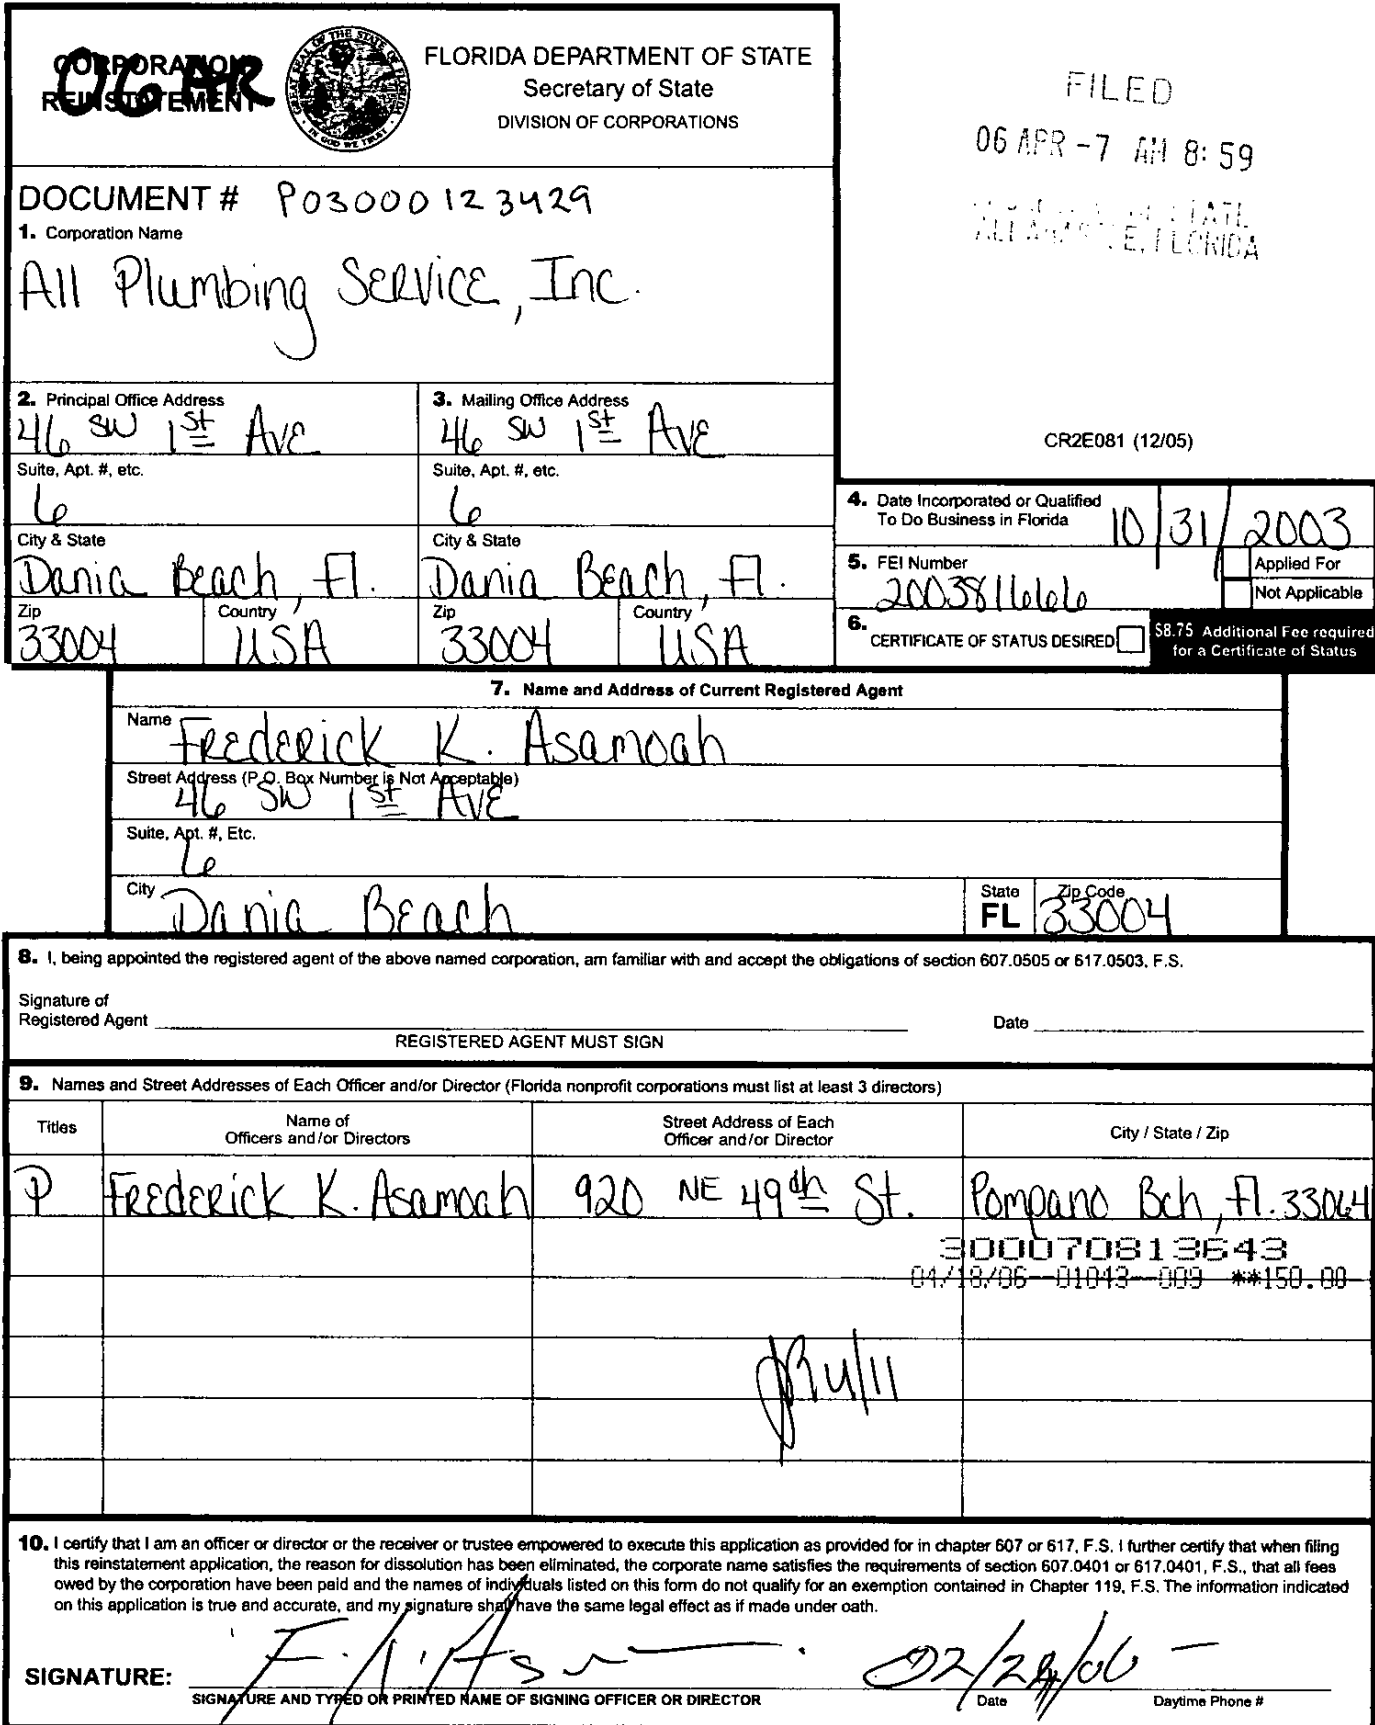 CORPORATION
REINSTATEMENT
06 AR
GREAT SEAL OF THE STATE OF FLORIDA
IN GOD WE TRUST
FLORIDA DEPARTMENT OF STATE
Secretary of State
DIVISION OF CORPORATIONS
FILED
06 APR -7 AM 8:59
STATE
E, FLORIDA
DOCUMENT # P03000123429
1. Corporation Name
All Plumbing Service, Inc.
2. Principal Office Address
46 SW 1st Ave
3. Mailing Office Address
46 SW 1st Ave
CR2E081 (12/05)
Suite, Apt. #, etc.
6
Suite, Apt. #, etc.
6
4. Date Incorporated or Qualified
To Do Business in Florida
10/31/2003
City & State
Dania Beach, Fl.
City & State
Dania Beach, Fl.
5. FEI Number
200381666
Applied For
Not Applicable
Zip
33004
Country
USA
Zip
33004
Country
USA
6.
CERTIFICATE OF STATUS DESIRED
$8.75 Additional Fee required
for a Certificate of Status
7. Name and Address of Current Registered Agent
Name
Frederick K. Asamoah
Street Address (P.O. Box Number is Not Acceptable)
46 SW 1st Ave
Suite, Apt. #, Etc.
6
City
Dania Beach
State
FL
Zip Code
33004
8. I, being appointed the registered agent of the above named corporation, am familiar with and accept the obligations of section 607.0505 or 617.0503, F.S.
Signature of
Registered Agent
Date
REGISTERED AGENT MUST SIGN
9. Names and Street Addresses of Each Officer and/or Director (Florida nonprofit corporations must list at least 3 directors)
Titles
Name of
Officers and/or Directors
Street Address of Each
Officer and/or Director
City / State / Zip
P Frederick K. Asamoah 920 NE 49th St. Pompano Bch, Fl. 33064
300070813643
04/18/06--01043--009 **150.00
JB 4/11
10. I certify that I am an officer or director or the receiver or trustee empowered to execute this application as provided for in chapter 607 or 617, F.S. I further certify that when filing
this reinstatement application, the reason for dissolution has been eliminated, the corporate name satisfies the requirements of section 607.0401 or 617.0401, F.S., that all fees
owed by the corporation have been paid and the names of individuals listed on this form do not qualify for an exemption contained in Chapter 119, F.S. The information indicated
on this application is true and accurate, and my signature shall have the same legal effect as if made under oath.
SIGNATURE:
02/28/06
SIGNATURE AND TYPED OR PRINTED NAME OF SIGNING OFFICER OR DIRECTOR
Date
Daytime Phone #